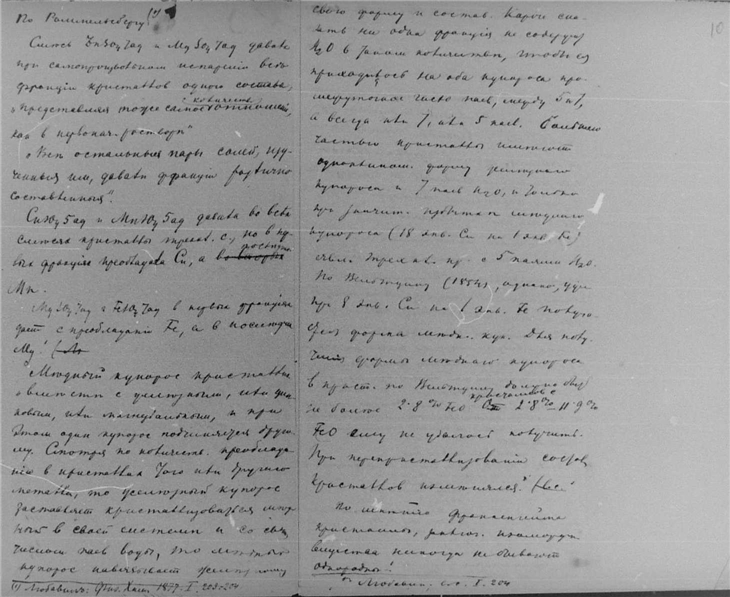 По Раммельсбергу (*)
Смесь ZnSO4 7aq и MgSO4 7aq давала
при самопроизвольном испарении все
фракции кристаллов одного состава,
количеств.
"представляя тоже самое отношение,
как в первонач. растворе"
"Все остальные пары солей, изу-
ченныя им, давали фракции различно
составленныя".
CuSO4 5aq и MnSO4 5aq давала во всех
смесях кристаллы трехкл. с., но в пер-
вых фракциях преобладала Cu, а
Mn.
MgSO4 7aq и FeSO4 7aq в первых фракциях
дает с преобладанием Fe, а в последних
Mg!
"Медный купорос кристалли-
зовывается с железным, или цин-
ковым, или магнезиальным, и при
этом один купорос подчиняется друго-
му. Смотря по количеств. преоблада-
нию в кристаллах того или другого
металла, то железный купорос
заставляет кристаллизоваться мед-
ный в своей системе и со свои
числом паев воды, то медный
купорос навязывает железному
(*) Любавин: Физ. Хим. 1877 I 203-204
свою форму и состав. Кароче ска-
зать ни одна фракция не содержит
H2O в таком количестве, чтобы ея
приходилось на оба купороса про-
межуточное число паев, между 5 и 7,
а всегда или 7, или 5 паев. Большею
частью кристаллы имеют
одноклином. форму железнаго
купороса и 7 паев H2O, и только
при значит. избытке меднаго
купороса (18 экв. Cu на 1 экв. Fe)
трехкл. кр. с 5 паями H2O.
По (1854), однако, уже
при 8 экв. Cu на 1 экв. Fe получа-
ется форма медн. куп. Для полу-
чения формы меднаго купороса
в крист. по должно быть
не более 2.8% FeO 2.8% – 11.9%
FeO ему не удалось получить.
При перекристаллизовании состав
кристаллов изменялся".
По мнению Франкенгейма
кристаллы, изоморфн.
вещества никогда не бывают
однородны!
Любавин, с. I. 204
10